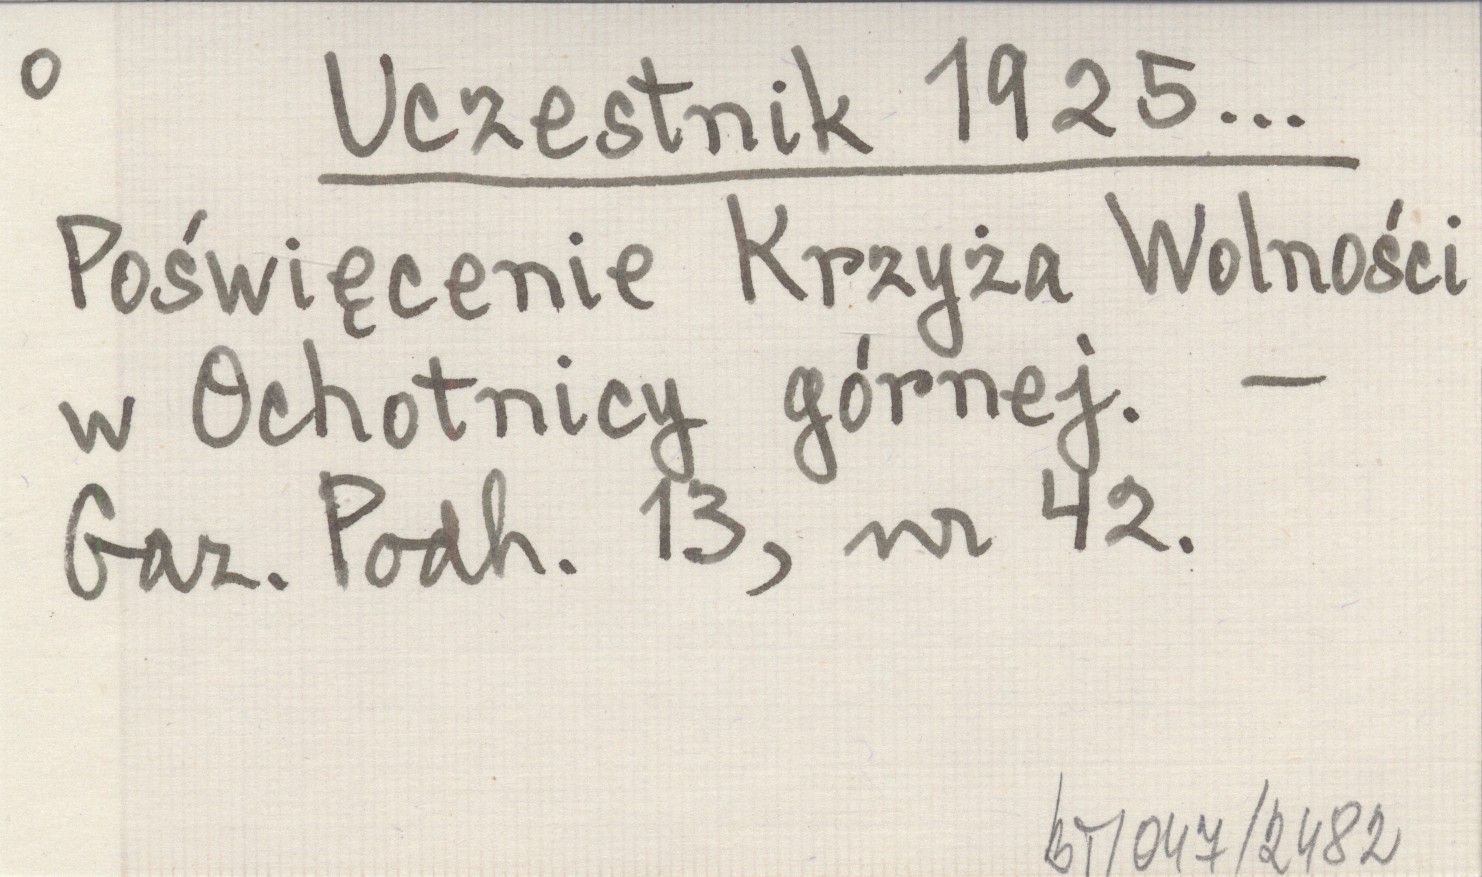 o
Uczestnik 1925...
Poświęcenie Krzyża Wolności
w Ochotnicy górnej. —
Gaz. Podh. 13, nr 42.
bT/047/2482